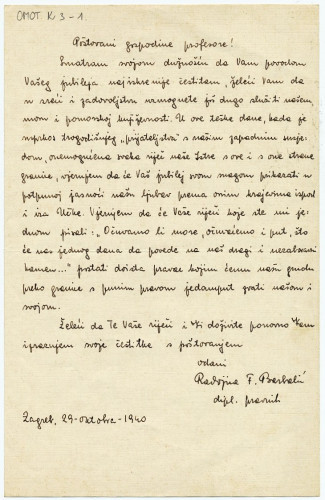 OMOT K 3-1
Poštovani gospodine profesore!
Smatram svojom dužnošću da Vam povodom
Vašeg jubileja najiskrenije čestitam, želeći Vam da
u sreći i zadovoljstvu uzmognete još dugo služiti našem,
mom i pomorskoj književnosti. U ove teške dane, kada je
usprkos trogodišnjeg „prijateljstva" s našim zapadnim susje-
dom, onemogućena svaka riječ naše Istre s ove i s one strane
granice, vjerujem da će Vaš jubilej svom snagom prikazati u
potpunoj jasnoći našu ljubav prema onim krajevima ispod
i iza Učke. Vjerujem da će Vaše riječi koje ste mi je-
dnom pisali: „Očuvamo li more, očuvaćemo i put, što
će nas jednog dana da povede na naš dragi i nezaboravni
kamen..." postati doista pravac kojim ćemo našu grudu
preko granice s punim pravom jedamput zvati našom i
svojom.
Želeći da Te Vaše riječi i Vi doživite ponovno Vam
izrazujem svoje čestitke s poštovanjem
odani
Radojica F. Barbalić
dipl. pravnik
Zagreb, 29-oktobra-1940